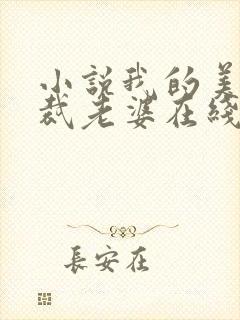 小说我的美
裁老婆在线
長安在